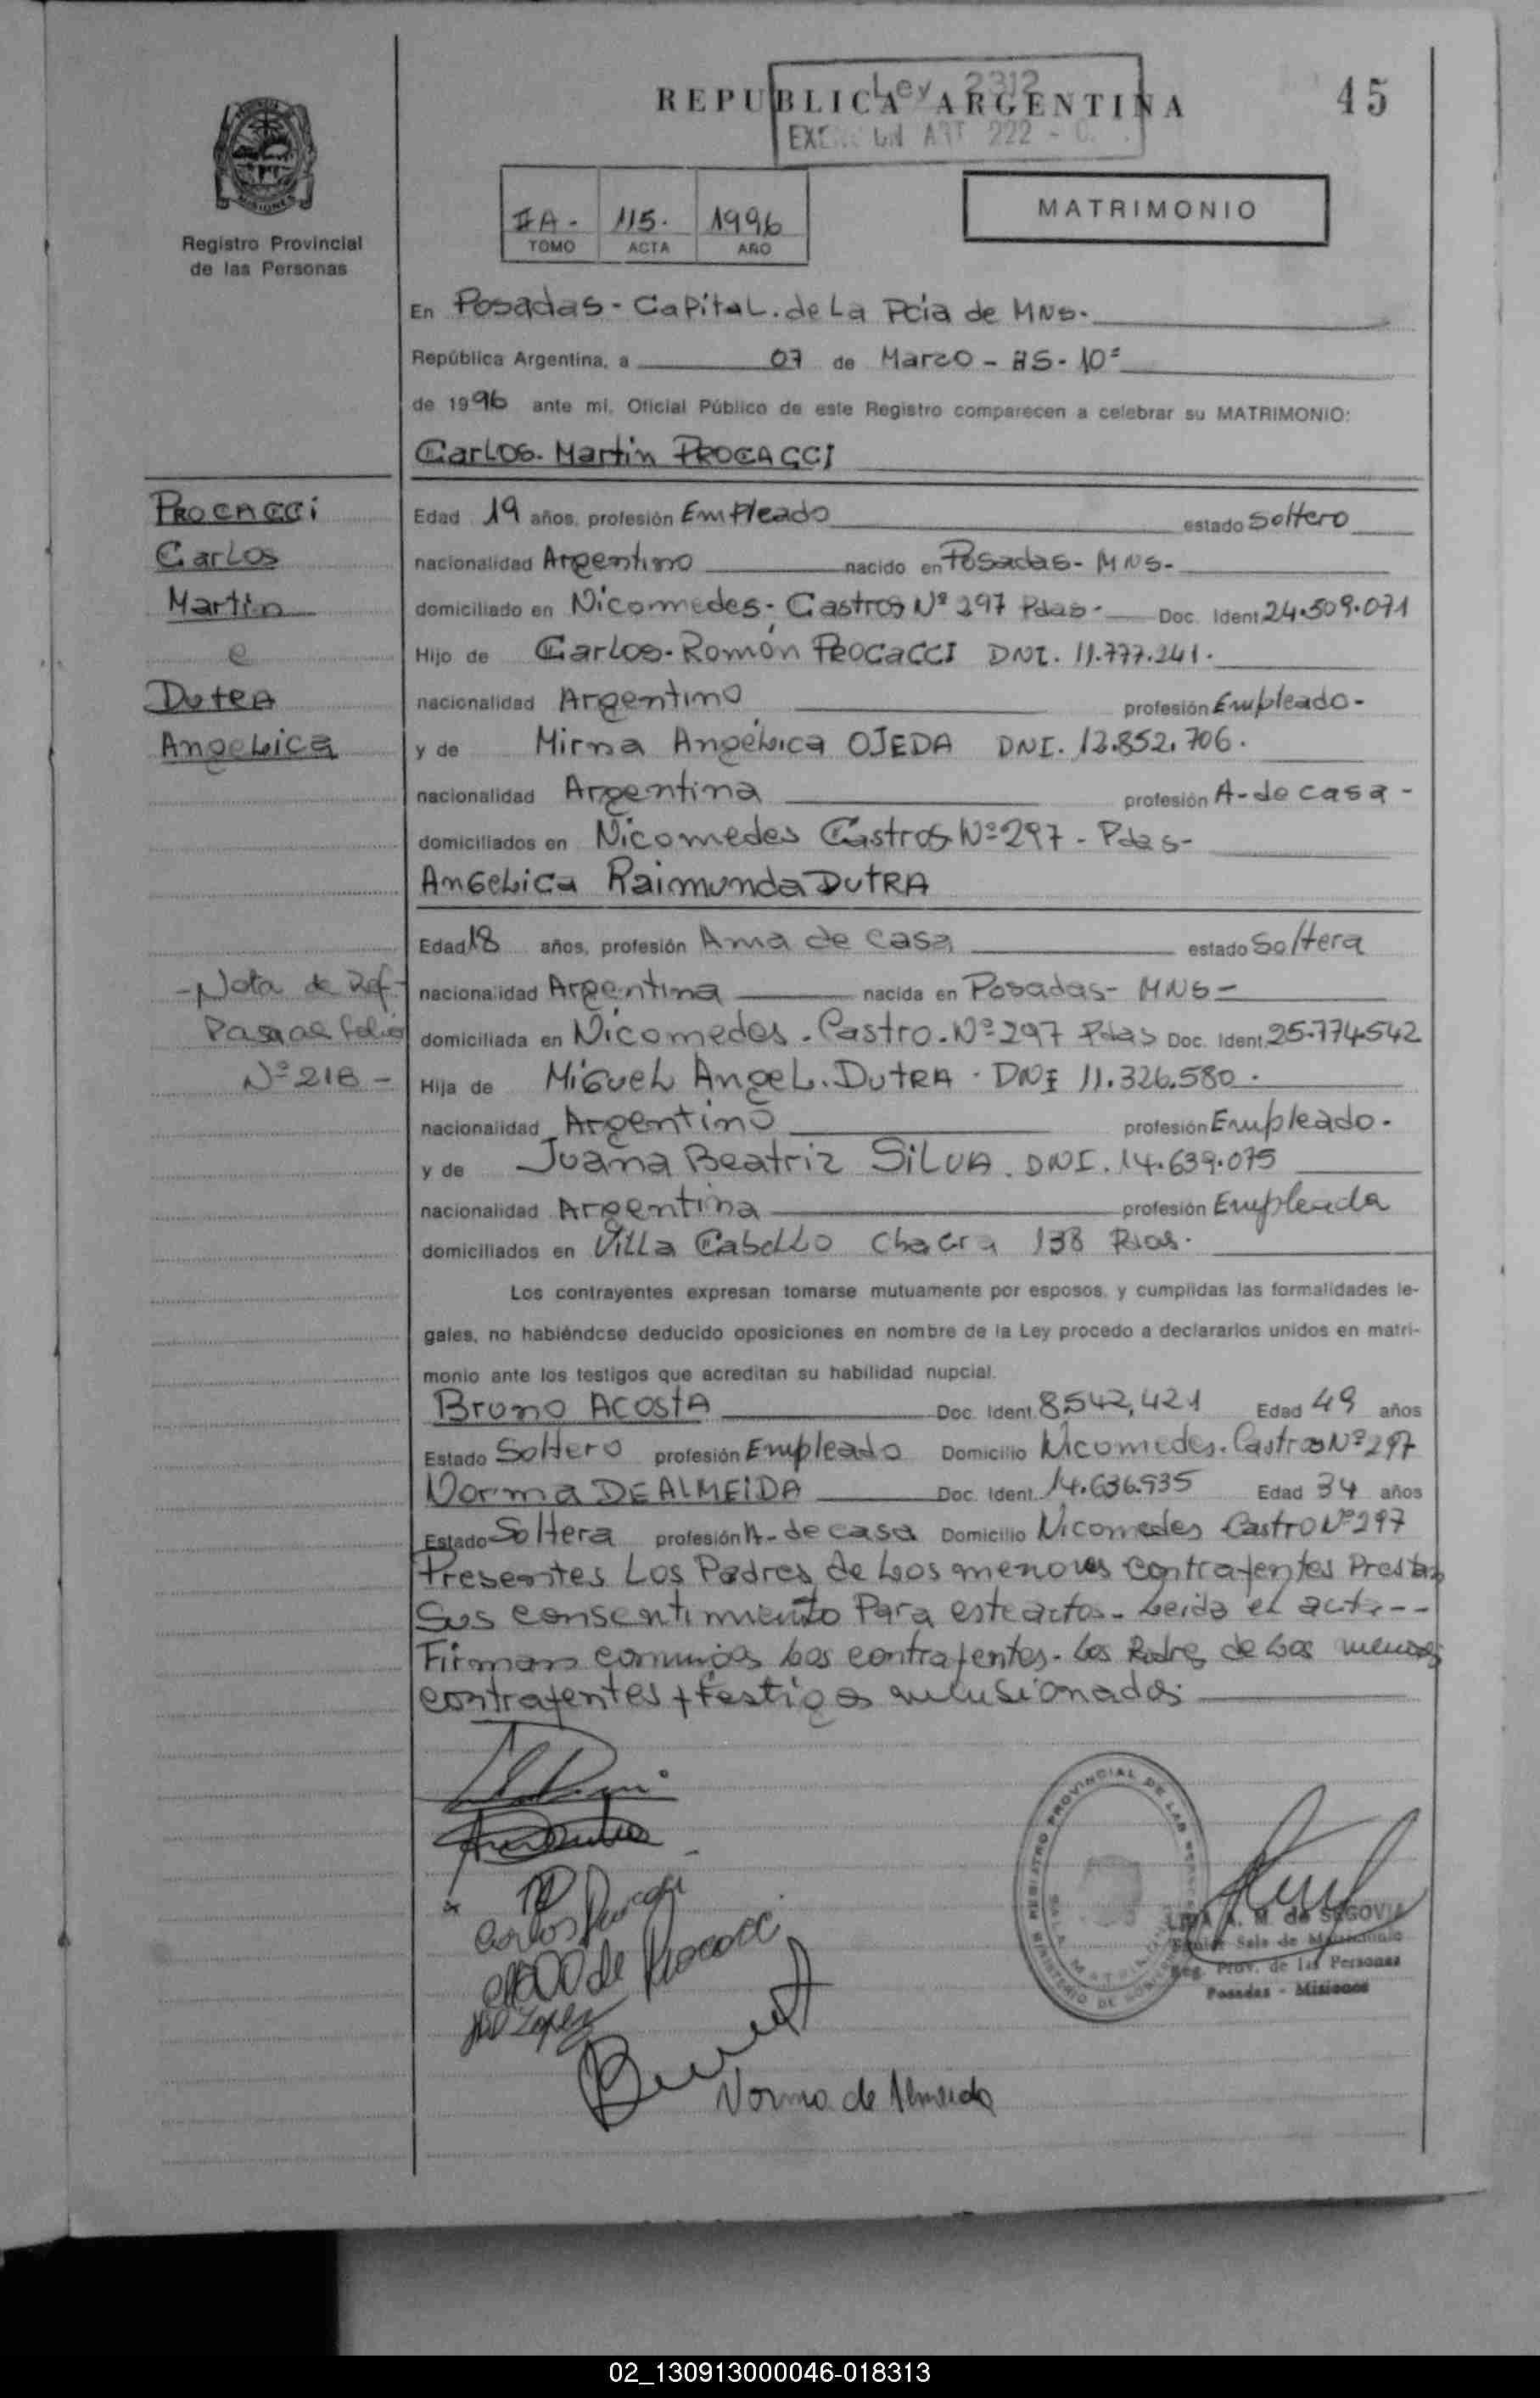 REPUBLICA ARGENTINA
Ley 2312
45
ART 222 -
MISIONES
Registro Provincial
de las Personas
IIA - 115. 1996
TOMO ACTA AÑO
MATRIMONIO
En Posadas - Capital. de La Pcia de MNS.
República Argentina, a 07 de Marzo - HS - 10
de 1996 ante mi, Oficial Público de este Registro comparecen a celebrar su MATRIMONIO:
Carlos. Martin PROCACCI
PROCACCi
Carlos
Martin
e
DutRA
Angelica
Edad 19 años, profesión Empleado estado Soltero
nacionalidad Argentino nacido en Posadas - MNS -
domiciliado en Nicomedes - Castros Nº 297 Pdas - Doc. Ident 24.509.071
Hijo de Carlos - Román PROCACCI DNI. 11.777.241.
nacionalidad Argentino profesión Empleado -
y de Mirna Angélica OJEDA DNI. 12.852.706.
nacionalidad Argentina profesión A - de casa -
domiciliados en Nicomedes Castros Nº 297 - Pdas -
Angelica Raimunda DutRA
Edad 18 años, profesión Ama de casa estado Soltera
- Nota de Ref -
Pasa al folio
Nº 218 -
nacionalidad Argentina nacida en Posadas - MNS -
domiciliada en Nicomedes . Castro . Nº 297 Pdas Doc. Ident. 25.774.542
Hija de Miguel Angel . DutRA . DNI 11.326.580 .
nacionalidad Argentino profesión Empleado .
y de Juana Beatriz SiLVA . DNI . 14.639.075
nacionalidad Argentina profesión Empleada
domiciliados en Villa Cabello Chacra 138
Los contrayentes expresan tomarse mutuamente por esposos, y cumplidas las formalidades le-
gales, no habiéndose deducido oposiciones en nombre de la Ley procedo a declararlos unidos en matri-
monio ante los testigos que acreditan su habilidad nupcial.
Bruno ACOSTA Doc. Ident. 8.542.421 Edad 49 años
Estado Soltero profesión Empleado Domicilio Nicomedes . Castros Nº 297
Norma DEALMEiDA Doc. Ident. 14.636.935 Edad 34 años
Estado Soltera profesión A - de casa Domicilio Nicomedes Castro Nº 297
Presentes Los Padres de Los menores contrayentes Prestan
Sus consentimiento Para este acto - Leida el acta - -
Firman conmigo Los contrayentes - Los Padres de Los menores
contrayentes y testigos
Carlos Procacci
de Procacci
Lopez
Norma de Almeida
REGISTRO PROVINCIAL DE LAS PERSONAS
SALA MATRIMONIO
MINISTERIO DE GOBIERNO
A. M. de SEGOVIA
Sala de Matrimonio
Reg. Prov. de las Personas
Posadas - Misiones
02_130913000046-018313